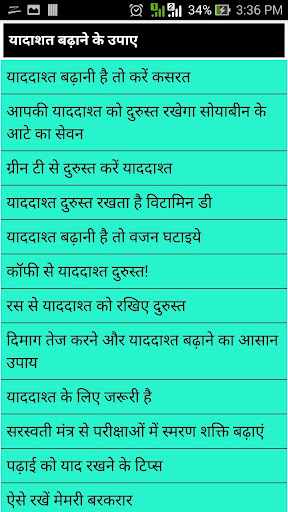 34% 3:36 PM
यादाशत बढ़ाने के उपाए
याददाश्त बढ़ानी है तो करें कसरत
आपकी याददाश्त को दुरुस्त रखेगा सोयाबीन के
आटे का सेवन
ग्रीन टी से दुरुस्त करें याददाश्त
याददाश्त दुरुस्त रखता है विटामिन डी
याददाश्त बढ़ानी है तो वजन घटाइये
कॉफी से याददाश्त दुरुस्त!
रस से याददाश्त को रखिए दुरुस्त
दिमाग तेज करने और याददाश्त बढ़ाने का आसान
उपाय
याददाश्त के लिए जरूरी है
सरस्वती मंत्र से परीक्षाओं में स्मरण शक्ति बढ़ाएं
पढ़ाई को याद रखने के टिप्स
ऐसे रखें मेमरी बरकरार